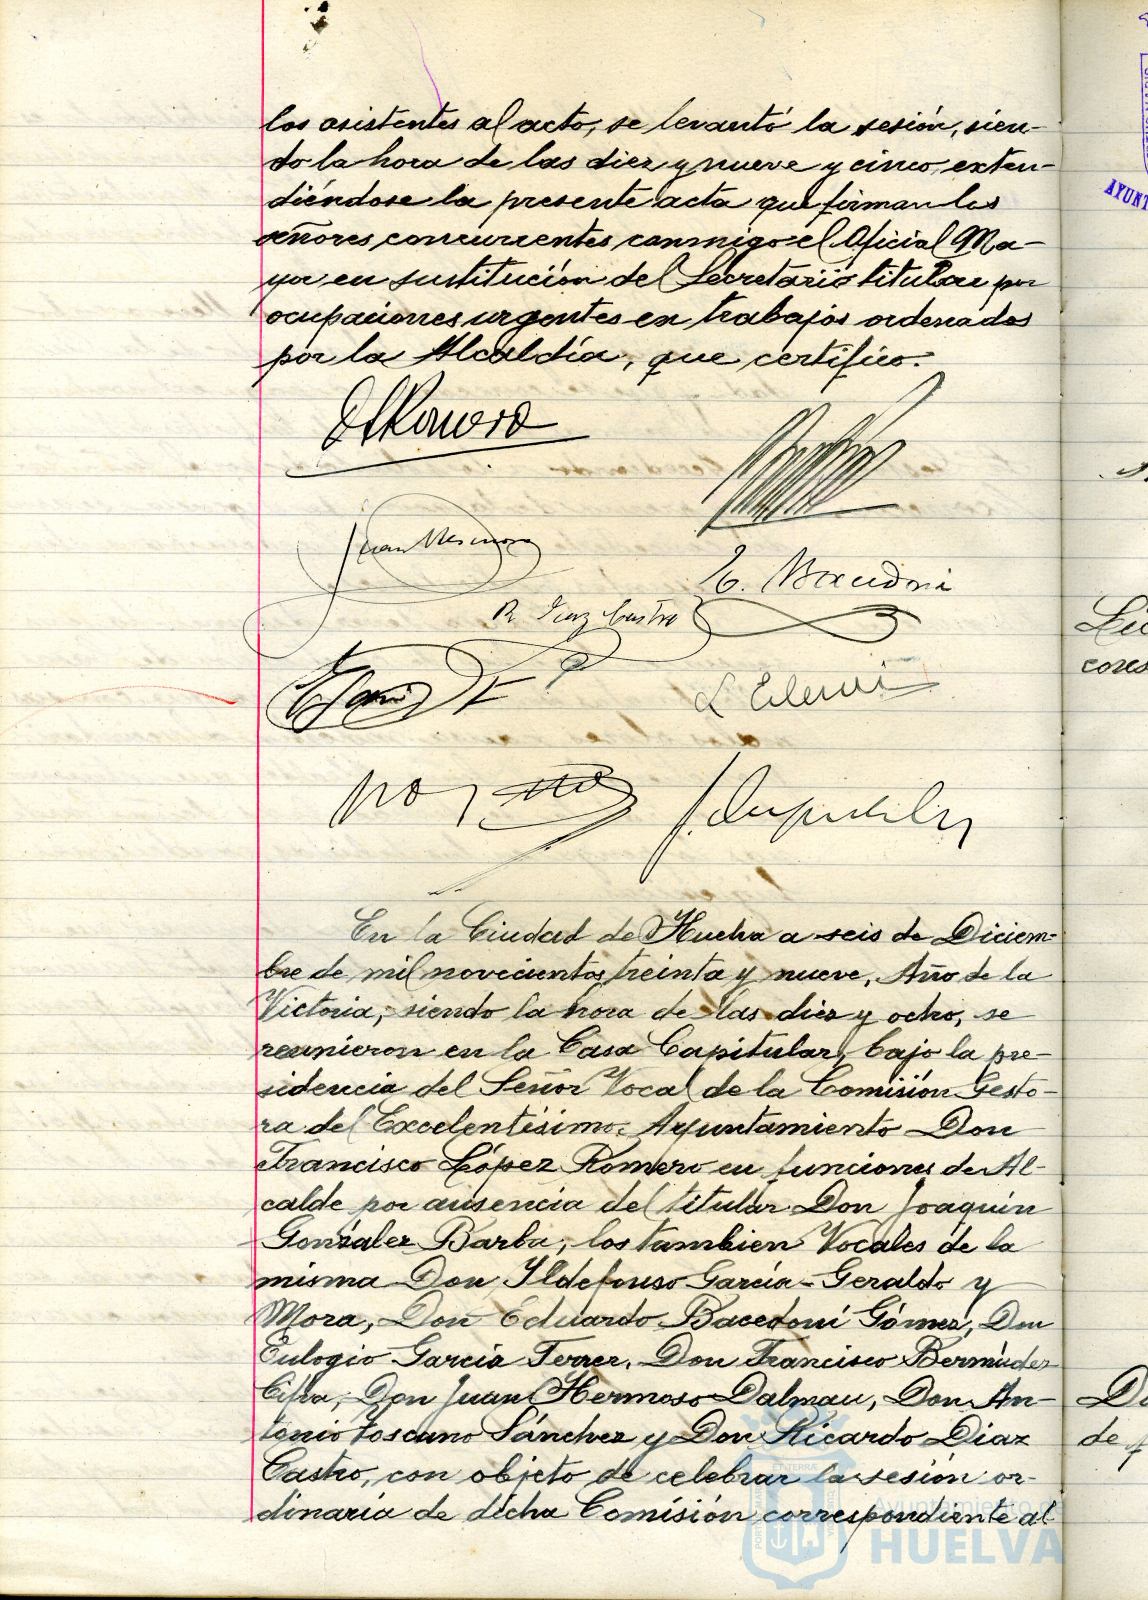 los asistentes al acto, se levantó la sesión, sien-
do la hora de las diez y nueve y cinco, exten-
diéndose la presente acta que firman los
señores concurrentes conmigo el Oficial Ma-
yor en sustitución del Secretario titular por
ocupaciones urgentes en trabajos ordenados
por la Alcaldía, que certifico.
Juan Hermoso
E. Bacedoni
R. Diaz Castro
En la Ciudad de Huelva a seis de Diciem-
bre de mil novecientos treinta y nueve, Año de la
Victoria, siendo la hora de las diez y ocho, se
reunieron en la Casa Capitular, bajo la pre-
sidencia del Señor Vocal de la Comisión Gesto-
ra del Excelentísimo Ayuntamiento Don
Francisco López Romero en funciones de Al-
calde por ausencia del titular Don Joaquín
González Barba, los tambien Vocales de la
misma Don Ildefonso García-Geraldo y
Mora, Don Eduardo Bacedoni Gómez, Don
Eulogio García Ferrer, Don Francisco Bermúdez
Don Juan Hermoso Dalmau, Don An-
tonio Toscano Sánchez y Don Ricardo Diaz
Castro, con objeto de celebrar la sesión or-
dinaria de dicha Comisión correspondiente al
Ayuntamiento de
HUELVA
AYUNT
Lic
cores
de f